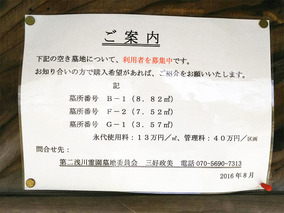 ご 案 内
下記の空き墓地について、利用者を募集中です。
お知り合いの方で購入希望があれば、ご紹介をお願いいたします。
記
墓所番号　B－1（8．82㎡）
墓所番号　F－2（7．52㎡）
墓所番号　G－1（3．57㎡）
永代使用料：13万円／㎡、管理料：40万円／区画
問合せ先：
第二浅川霊園墓地委員会　三好政美　電話 070-5690-7313
2016年8月